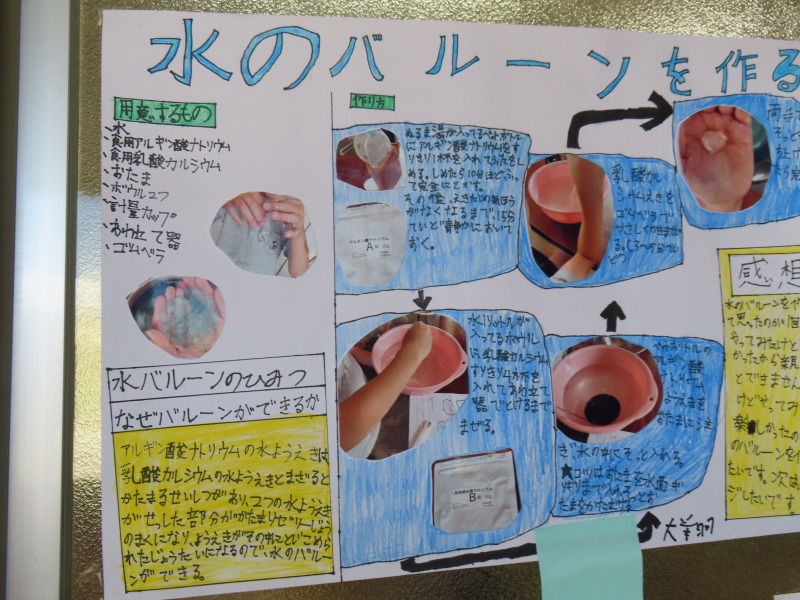 水のバルーンを作る
用意するもの
・水
・食用アルギン酸ナトリウム
・食用乳酸カルシウム
・おたま
・ボウル2つ
・計量カップ
・あわ立て器
・ゴムベラ
作り方
ぬるま湯が入ってるペットボトル
にアルギン酸ナトリウムをす
りきり1杯を入れてふたをし
める。しめたら10分ほどふっ
て完全にとかす。
その後、えきたいの
がなくなるまで、15分
ていど静かにおいて
おく。
アルギン酸ナトリウム
A
水1リットルが
入ってるボウル
に乳酸カルシウム
すりきり1杯を
入れてあわ立て
器でとけるまで、
まぜる。
B
ペットボトルの
アルギン酸
ナトリウム
ようえきを
おたまに注
ぎ、水の中にそっと入れる。
★コツはおたまを水面ぎ
りぎりまで入れ
乳酸カル
シウムえきを
ゴムベラで
やさしくかきまぜ
る。
両手
そっと
感想
水のバルーンを作
て思ったのが1回
やってみたけど
かったから楽
とできません
けどやってみ
楽しかったの
のバルーンを
たいです。次は
ジしたいです
水バルーンのひみつ
なぜバルーンができるか
アルギン酸ナトリウムの水ようえきは
乳酸カルシウムの水ようえきとまざると
かたまるせいしつがあり、2つの水ようえき
がせっした部分がかたまりゼリーじょう
のまくになり、ようえきがその中にとじこめら
れたじょうたいになるので、水のバルー
ンができる。